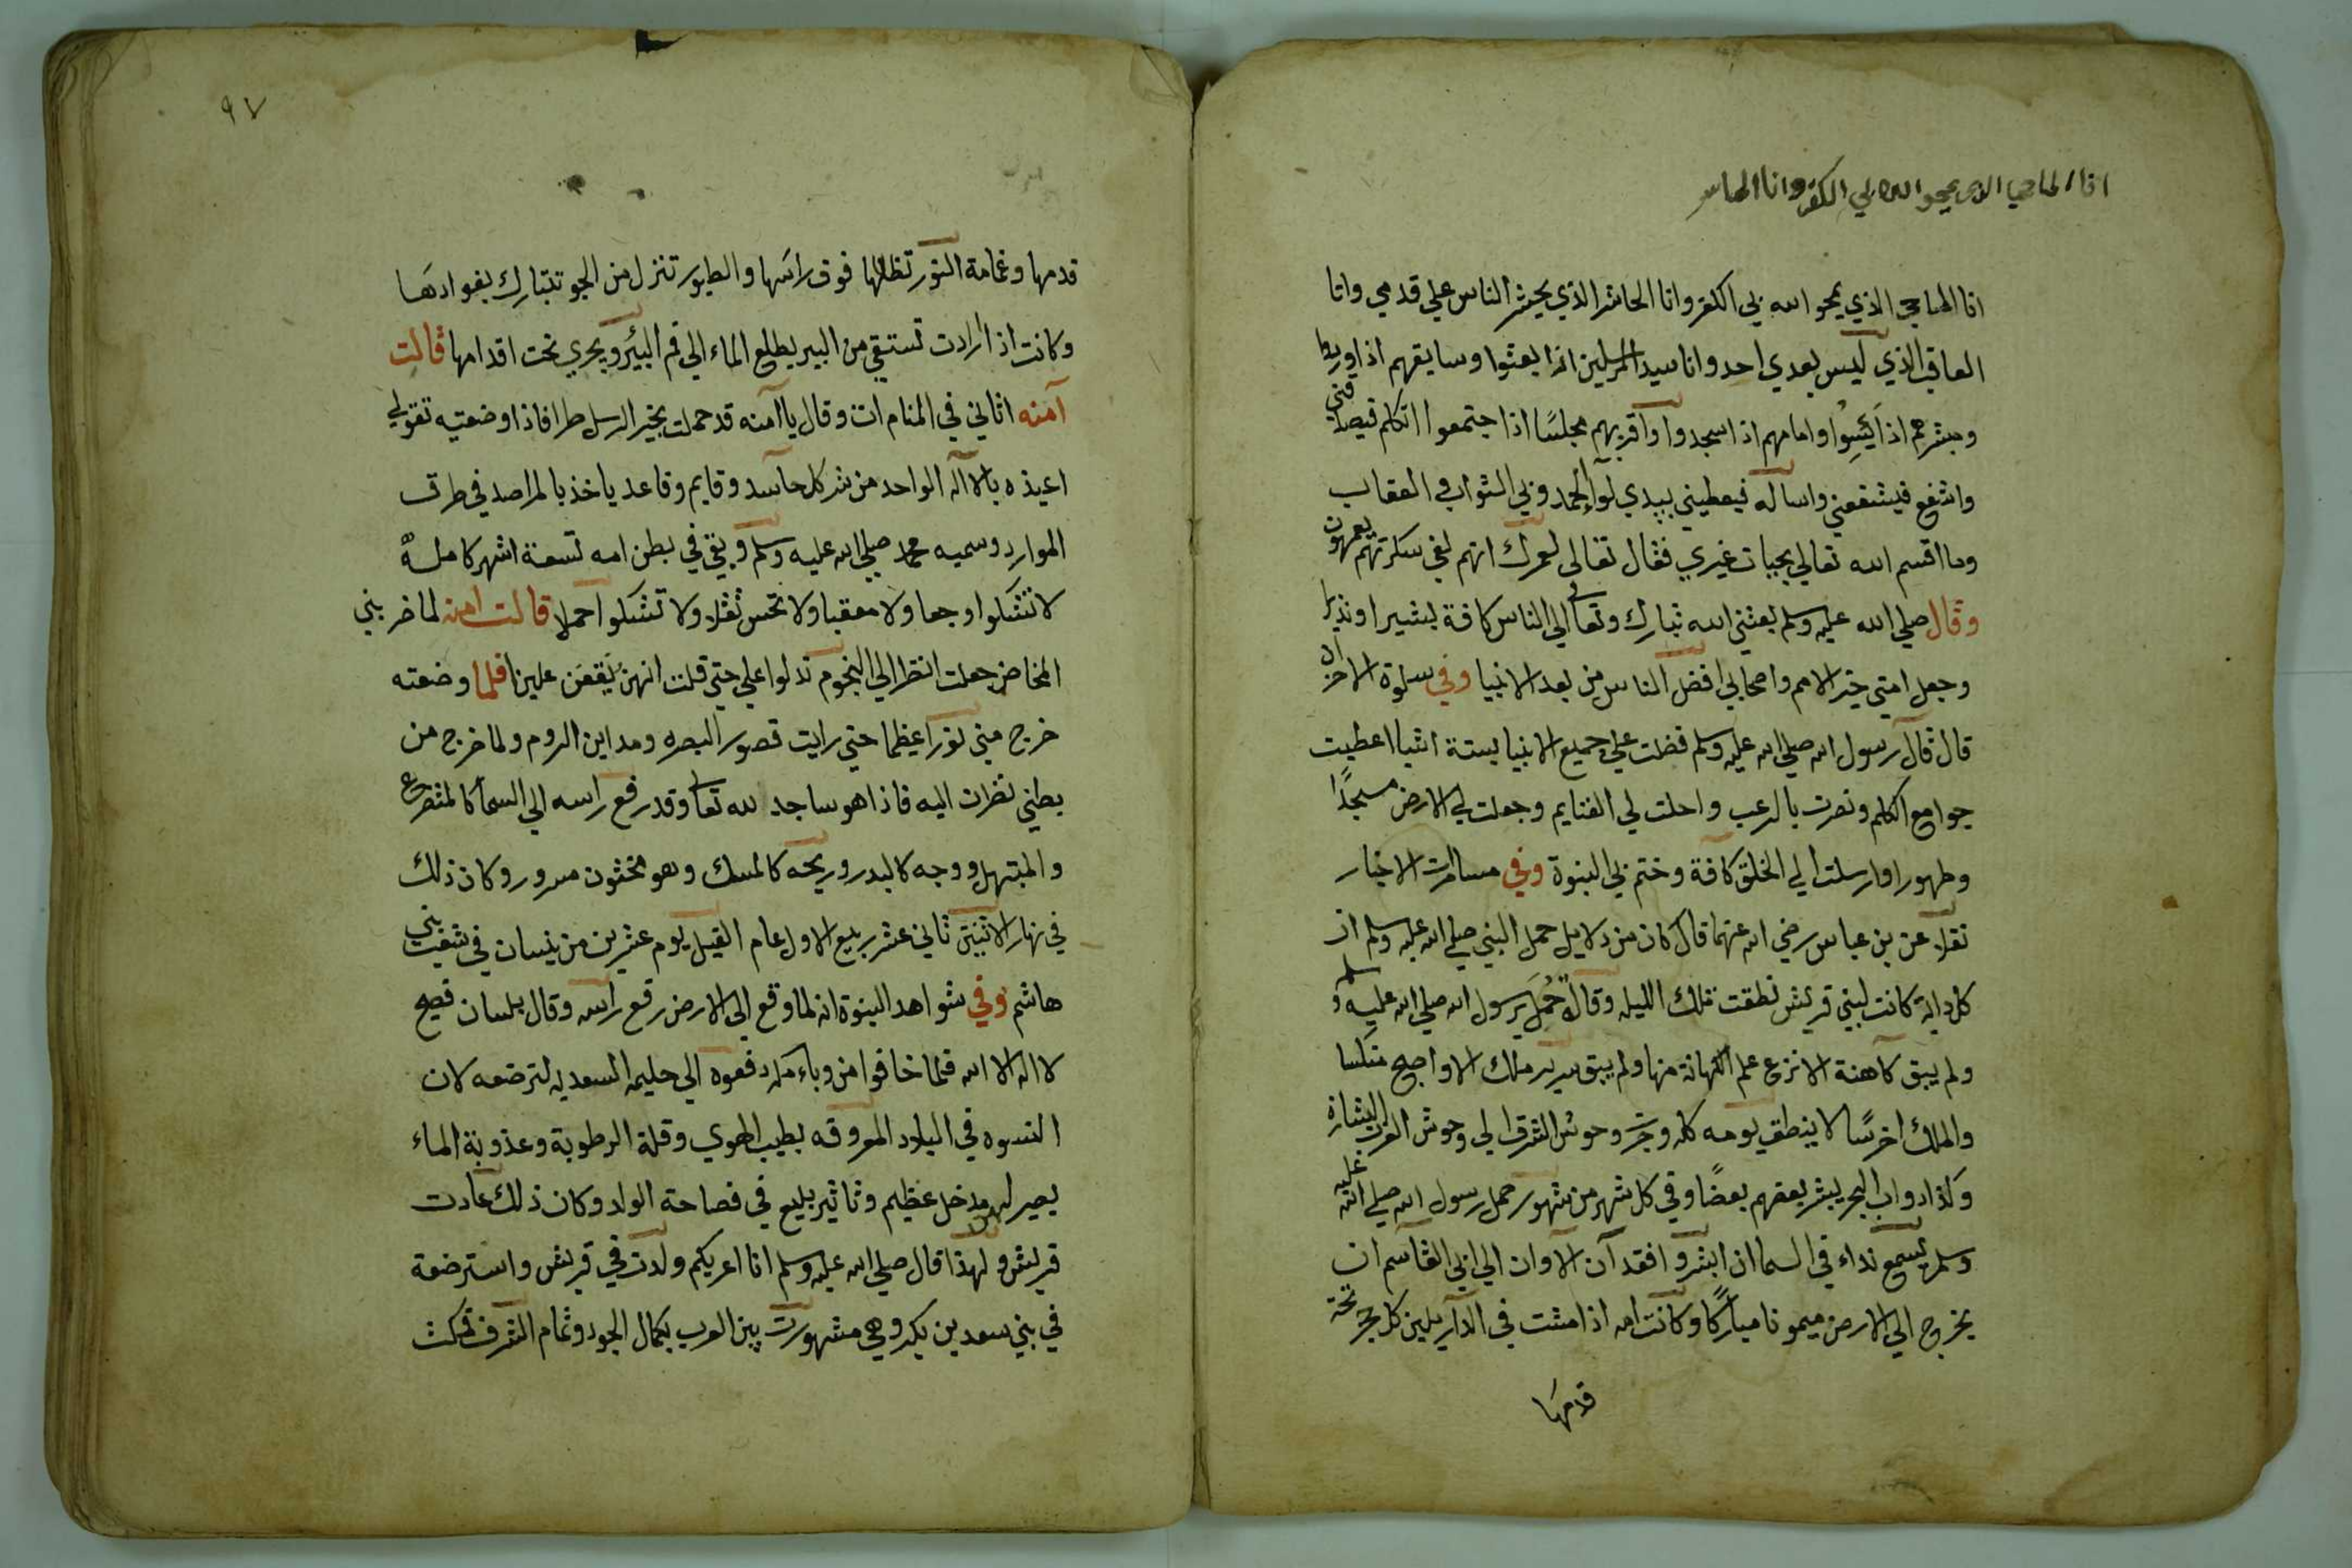 انا الماحي الذي يمحو الله بي الكفر وانا الحاشر
انا الماحي الذي يمحو الله بي الكفر وانا الحاشر الذي يحشر الناس علي قدمي وانا
العاقب الذي ليس بعدي احد وانا سيد المرسلين اذا بعثوا وسايقهم اذا وردوا
ومبشرهم اذا ايسوا وامامهم اذا سجدوا واقربهم مجلسًا اذا اجتمعوا اتكلم فيصدقني
واشفع فيشفعني واساله فيعطيني بيدي لوآ الحمد وبي الثواب و العقاب
وما اقسم الله تعالي بحيات غيري فقال تعالى لعمرك انهم لفي سكرتهم يعمهون
وقال صلي الله عليه وسلم بعثني الله تبارك وتعالى الي الناس كافة بشيرا ونذيرا
وجعل امتي خير الامم واصحابي افضل الناس من بعد الانبيا وفي سلوة الاحزان
قال قال رسول الله صلي الله عليه وسلم فضلت علي جميع الانبيا بستة اشيا اعطيت
جوامع الكلم ونصرت بالرعب واحلت لي الغنايم وجعلت لي الارض مسجدًا
وطهورا وارسلت الي الخلق كافة وختم بي النبوة وفي مسامرت الاخبار
نقلا عن بن عباس رضي الله عنهما قال كان من دلايل حمل النبي صلي الله عليه وسلم ان
كل دابة كانت لبني قريش نطقت تلك الليله وقالت حُمِلَ برسول الله صلي الله عليه وسلم
ولم يبق كاهنة الا نزع علم الكهانة منها ولم يبق سرير ملك الا واصبح منكسا
والملك اخرسًا لا ينطق يومه كله وجرت وحوش الشرق الي وحوش الغرب بالبشارة
وكذا دواب البحر يبشر بعضهم بعضًا وفي كل شهر من شهور حمل رسول الله صلي الله عليه
وسلم يسمع نداء في السما ان ابشروا فقد آن الاوان الي ابي القاسم ان
يخرج الي الارض ميمونا مباركًا وكانت امه اذا مشت في الدار يلين كل حجر تحت
قدمها
٩٧
قدمها وغمامة النور تظللها فوق راسَها والطيور تنزل من الجو تتبارك بفوادهَا
وكانت اذا ارادت تستقي من البير يطلع الماء الي فم البئر ويجري تحت اقدامها قالت
آمنه اتاني في المنام ات وقال يا آمنه قد حملت بخير الرسل طرا فاذا وضعتيه تقولي
اعيذه بالاله الواحد من شر كل حاسد وقايم وقاعد ياخذ بالمراصد في طرق
الموارد وسميه محمد صلي الله عليه وسلم وبقي في بطن امه تسعة اشهر كاملة
لا تشكلوا وجعا ولا مغصا ولا تحس ثقلا ولا تشكلوا حملا قالت امنه لما ضربني
المخاض جعلت انظر الي النجوم تدلوا علي حتي قلت انهن يَقعَن علينا فلما وضعته
خرج مني نورا عظيما حتي رايت قصور البصره ومداين الروم ولما خرج من
بطني نظرت اليه فاذا هو ساجد لله تعالى وقد رفع راسه الي السما كالمتضرع
والمبتهل ووجه كالبدر وريحه كالمسك وهو مختون مسرور وكان ذلك
في نهار الاثنين ثاني عشر ربيع الاول عام الفيل يوم عشرين من نيسان في شعب بني
هاشم وفي شواهد النبوة انه لما وقع الي الارض رفع راسه وقال بلسان فصيح
لا اله الا الله فلما خافوا من وباء مكه دفعوه الي حليمه السعديه لترضعه لان
النسوه في البلاد المعروفه بطيب الهوي وقلة الرطوبة وعذوبة الماء
يصير لهن مدخل عظيم وتاثير بليع في فصاحة الولد وكان ذلك عادت
قريش ولهذا قال صلي الله عليه وسلم انا اعربكم ولدت في قريش واسترضعة
في بني سعد بن بكر وهي مشهورت بين العرب بكمال الجود وتمام الشرف فمكث